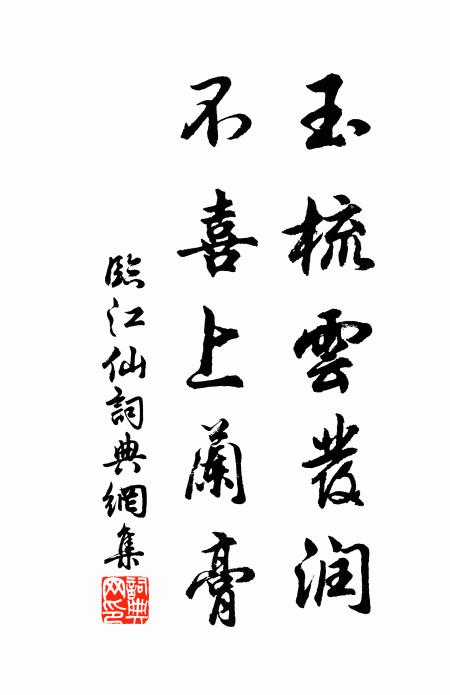 玉梳雲發润
不喜上蘭膏
臨江仙詞典網集
詞典網印